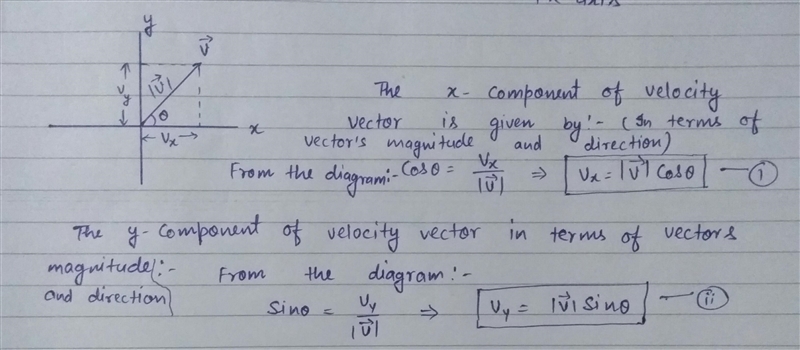 y
V⃗
|V⃗|
Vy
θ
Vx
x
The x- component of velocity
vector is given by:- (In terms of
vector's magnitude and direction)
From the diagram:- Cosθ = Vx/|V⃗| ⇒ Vx = |V⃗| Cosθ — (i)
The y- Component of velocity vector in terms of vectors
magnitude:- From the diagram:-
and direction
Sinθ = Vy/|V⃗| ⇒ Vy = |V⃗| Sinθ — (ii)